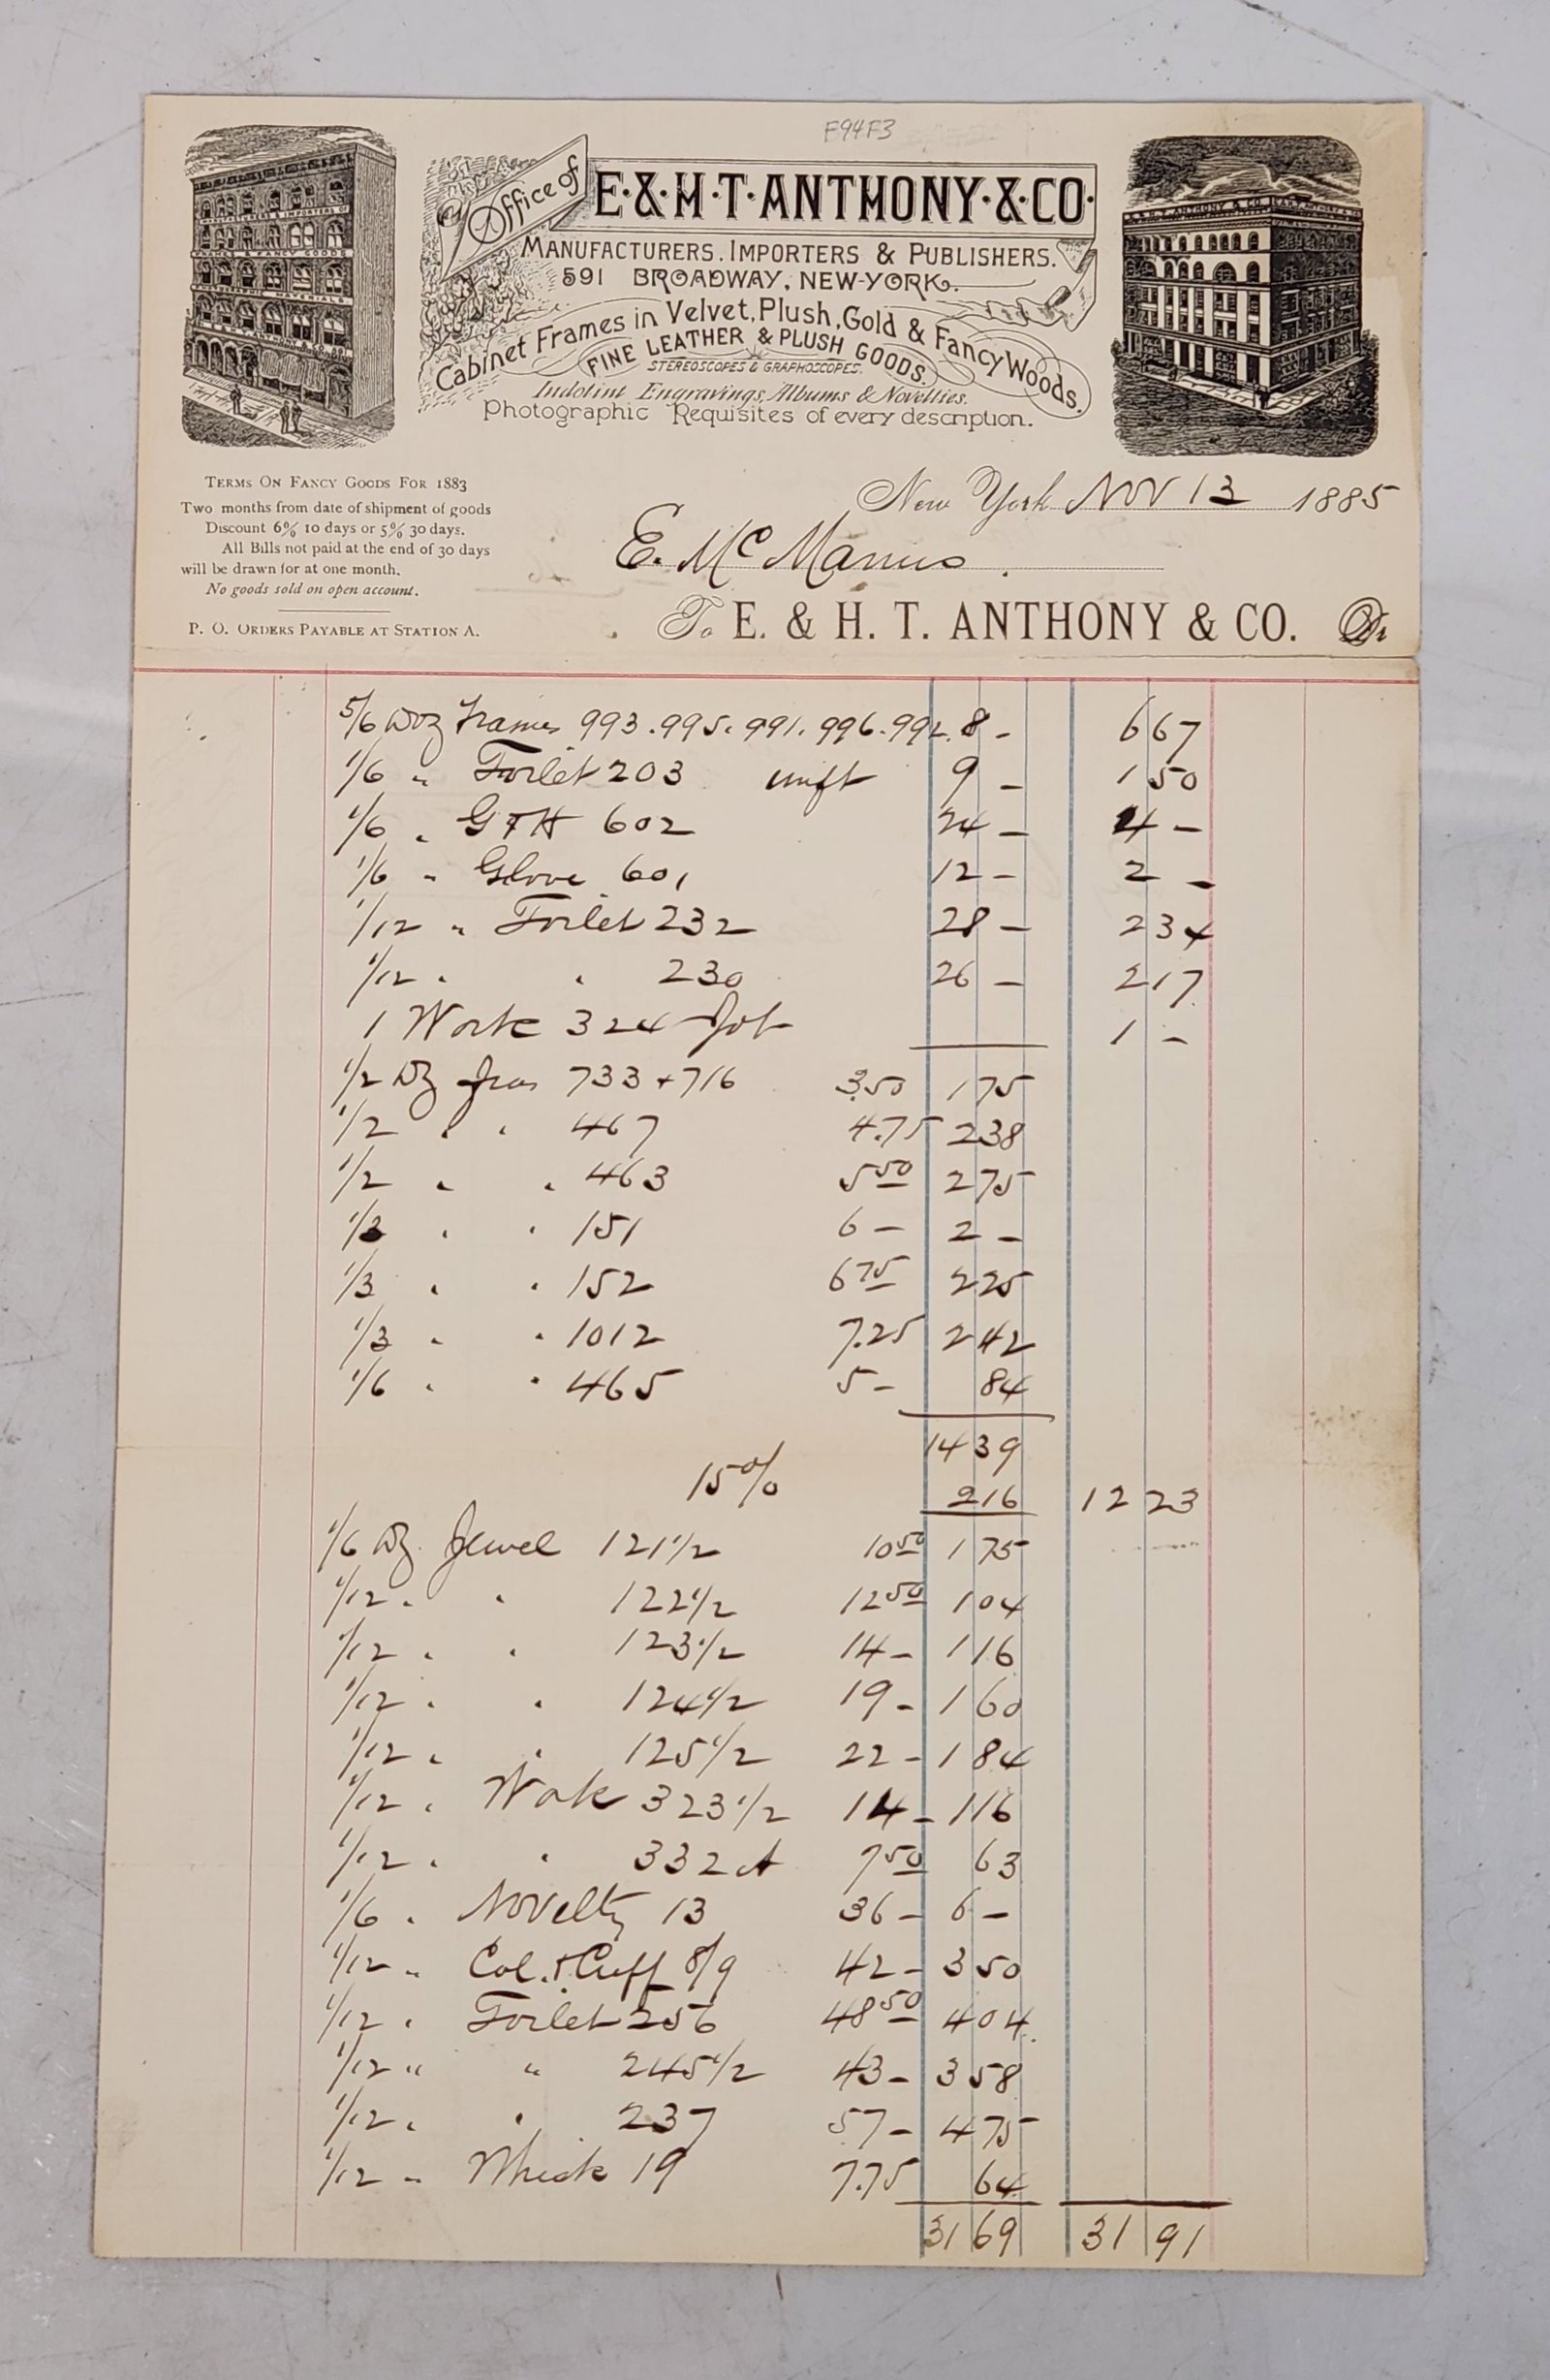 F94F3
Office of
E. & H. T. ANTHONY & CO.
MANUFACTURERS. IMPORTERS & PUBLISHERS.
591 BROADWAY, NEW-YORK.
Cabinet Frames in Velvet, Plush, Gold & Fancy Woods.
FINE LEATHER & PLUSH GOODS.
STEREOSCOPES & GRAPHOSCOPES.
Indotint Engravings, Albums & Novelties.
Photographic Requisites of every description.
TERMS ON FANCY GOODS FOR 1883
Two months from date of shipment of goods
Discount 6% 10 days or 5% 30 days.
All Bills not paid at the end of 30 days
will be drawn for at one month.
No goods sold on open account.
P. O. ORDERS PAYABLE AT STATION A.
New York Nov 13 1885
E. McManus.
To E. & H. T. ANTHONY & CO. Dr
5/6 Doz Frames 993.995.991.996.992. 8 - 6 67
1/6 " Toilet 203 9 - 1 50
1/6 " G & H 602 24 - 4 -
1/6 " Glove 601 12 - 2 -
1/12 " Toilet 232 28 - 2 34
1/12 " " 230 26 - 2 17
1 Work 324 Job 1 -
1/2 Dz 733 + 716 3.50 1 75
1/2 " " 467 4.75 2 38
1/2 " " 463 5 50 2 75
1/3 " " 151 6 - 2 -
1/3 " " 152 6 75 2 25
1/3 " " 1012 7.25 2 42
1/6 " " 465 5 - 84
14 39
15% 2 16 12 23
1/6 Dz. Jewel 121 1/2 10 50 1 75
1/12 " " 122 1/2 12 50 1 04
1/12 " " 123 1/2 14 - 1 16
1/12 " " 124 1/2 19 - 1 60
1/12 " " 125 1/2 22 - 1 84
1/12 " Work 323 1/2 14 - 1 16
1/12 " " 332 A 7 50 63
1/6 " Novelty 13 36 - 6 -
1/12 " Col. & Cuff 8/9 42 - 3 50
1/12 " Toilet 256 48 50 4 04
1/12 " " 245 1/2 43 - 3 58
1/12 " " 237 57 - 4 75
1/12 " Whisk 19 7.75 64
31 69 31 91